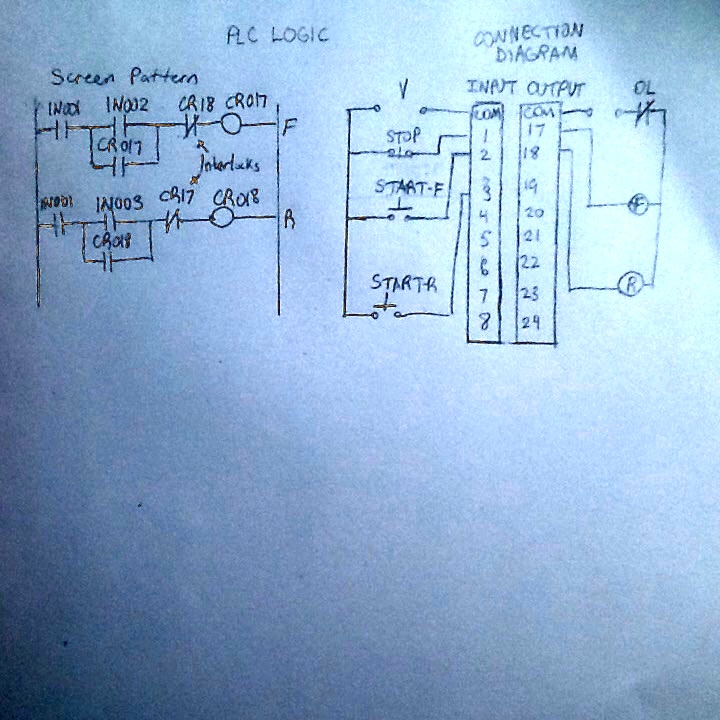 PLC LOGIC
CONNECTION
DIAGRAM
Screen Pattern
IN001 IN002 CR18 CR017
F
CR017
Interlocks
IN001 IN003 CR17 CR018
R
CR018
V
INPUT OUTPUT
OL
COM COM
STOP
1 17
2 18
START-F
3 19
F
4 20
5 21
6 22
START-R
R
7 23
8 24